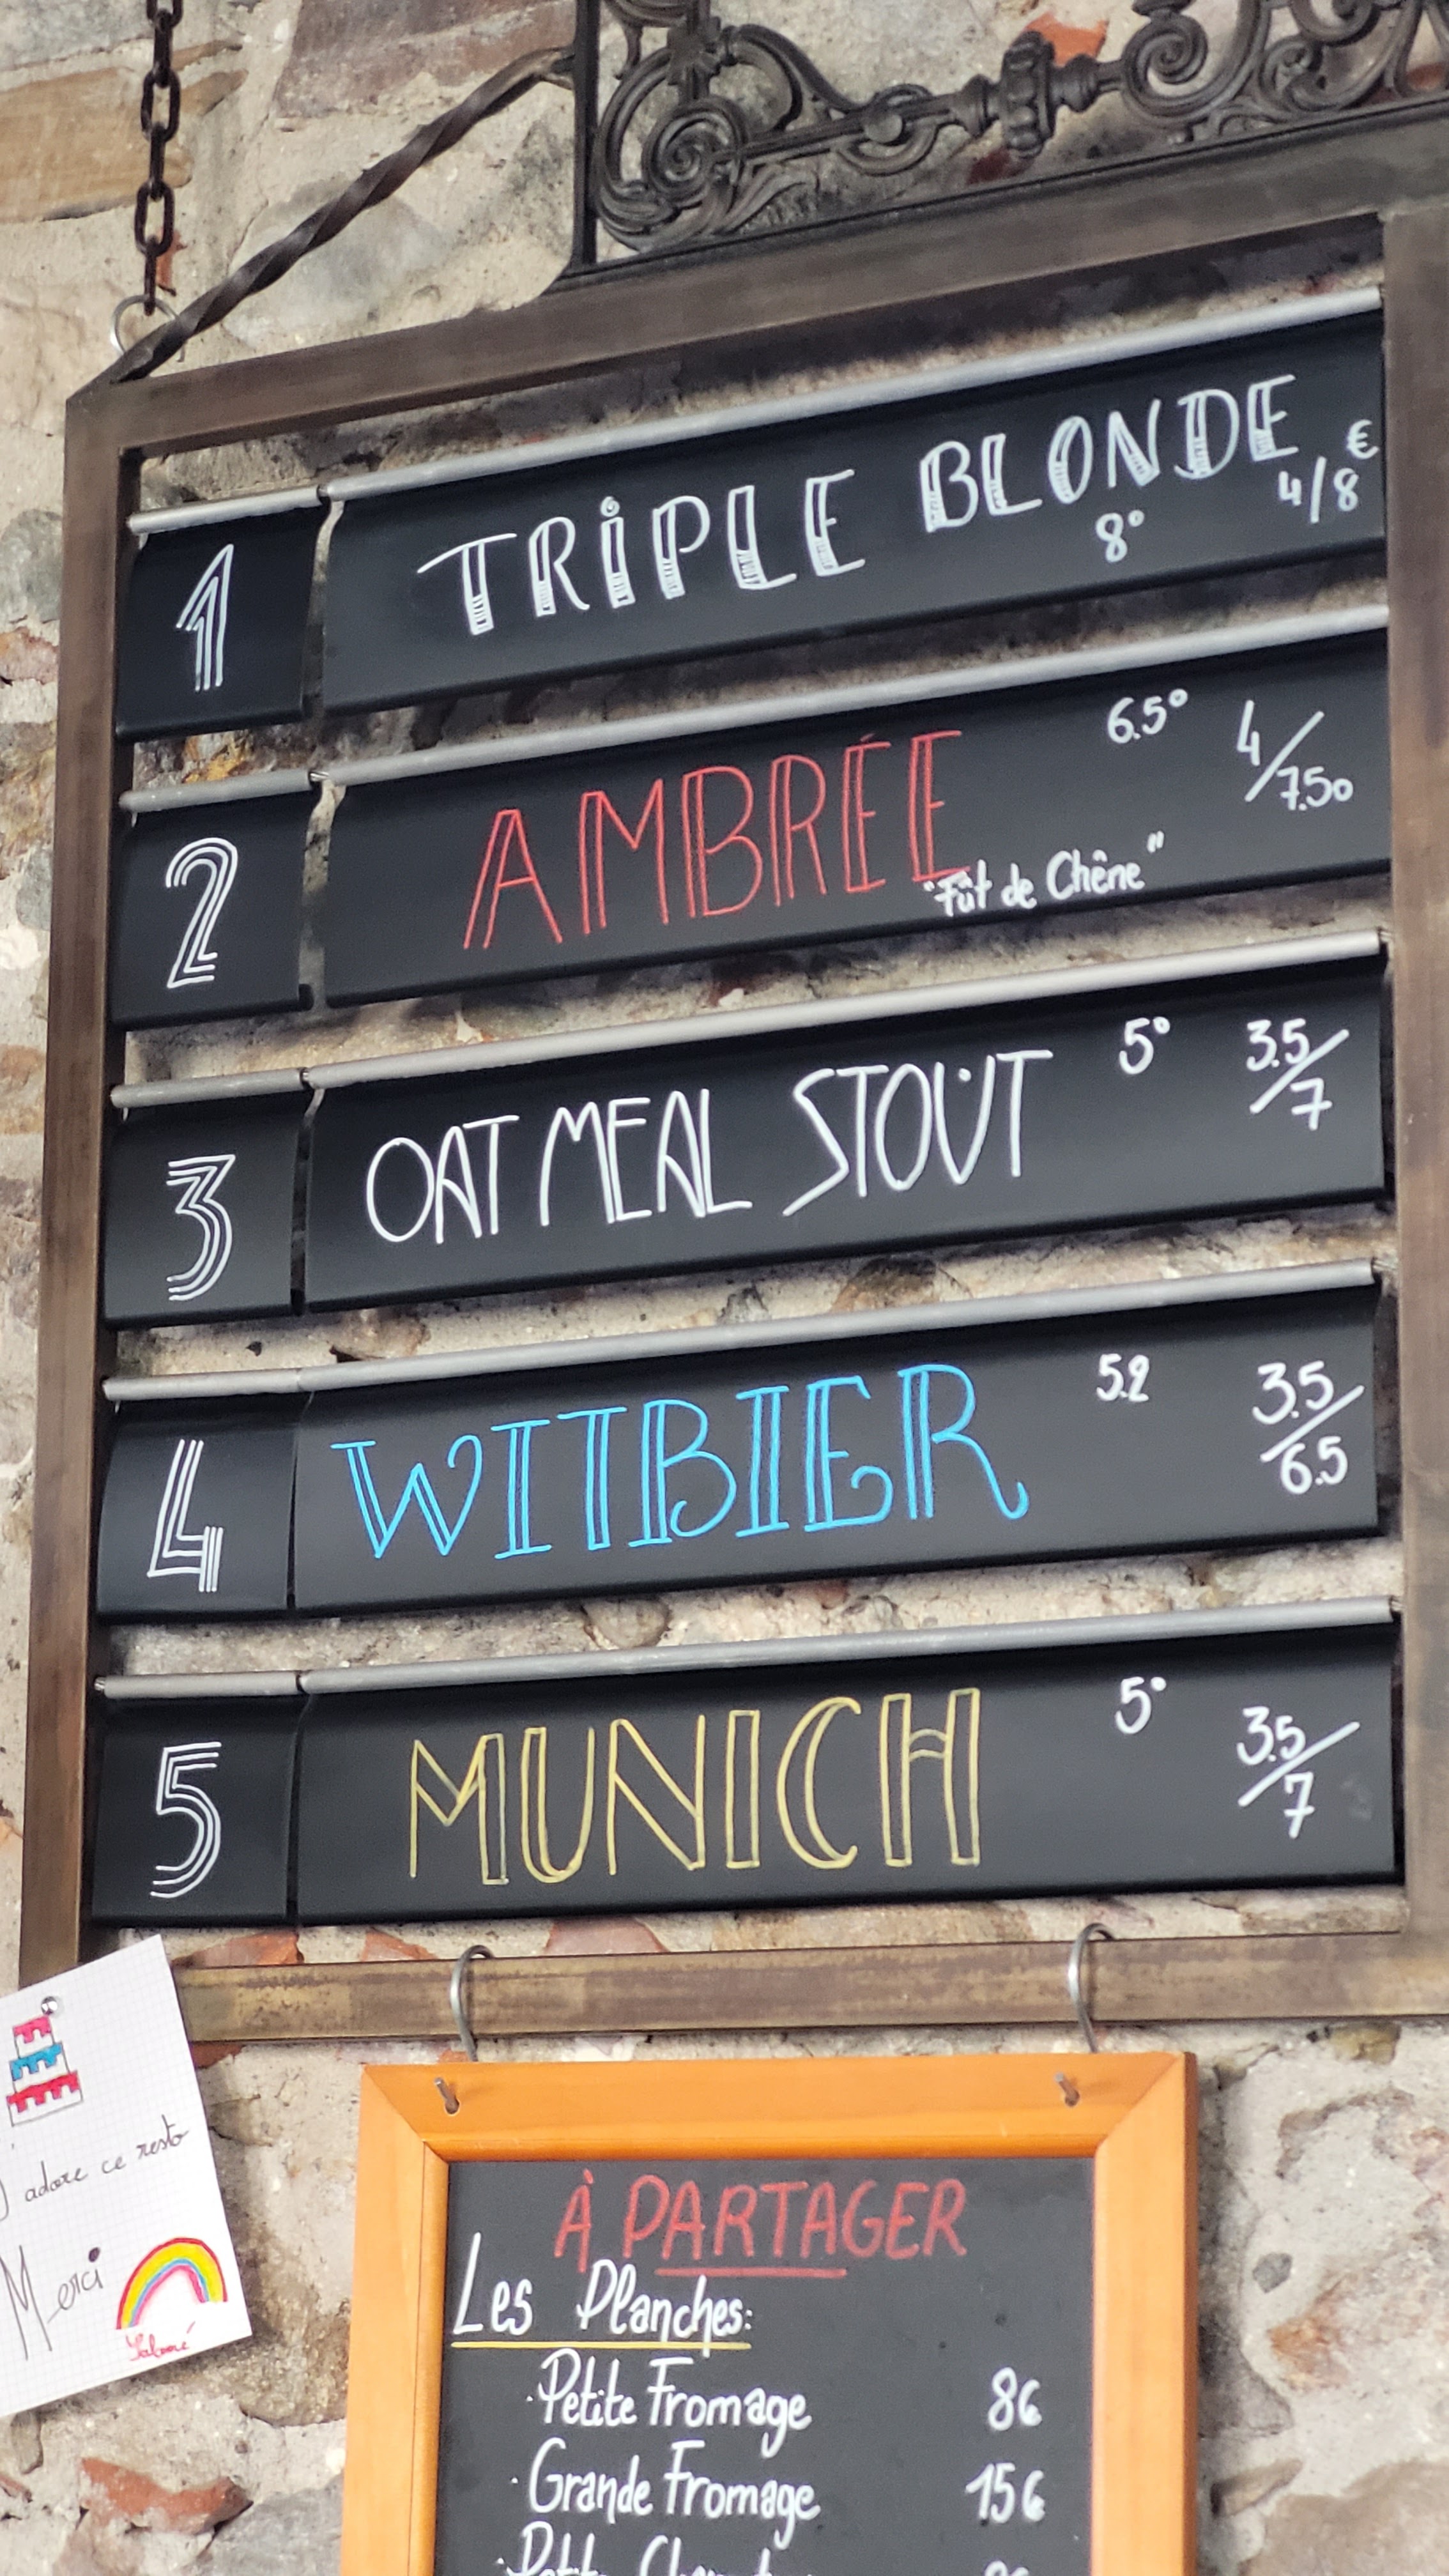 1 TRIPLE BLONDE 8° 4/8 €
2 AMBRÉE 6.5° 4/7.50
"Fût de Chêne"
3 OATMEAL STOUT 5° 3.5/7
4 WITBIER 5.2 3.5/6.5
5 MUNICH 5° 3.5/7
J'adore ce resto
Merci
À PARTAGER
Les Planches:
· Petite Fromage 8€
· Grande Fromage 15€